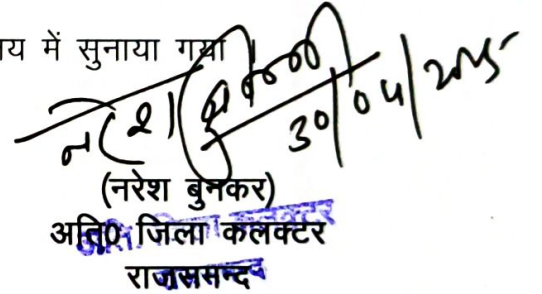 य में सुनाया गया
30/04/2025
(नरेश बुनकर)
अति0 जिला कलक्टर
राजसमन्द